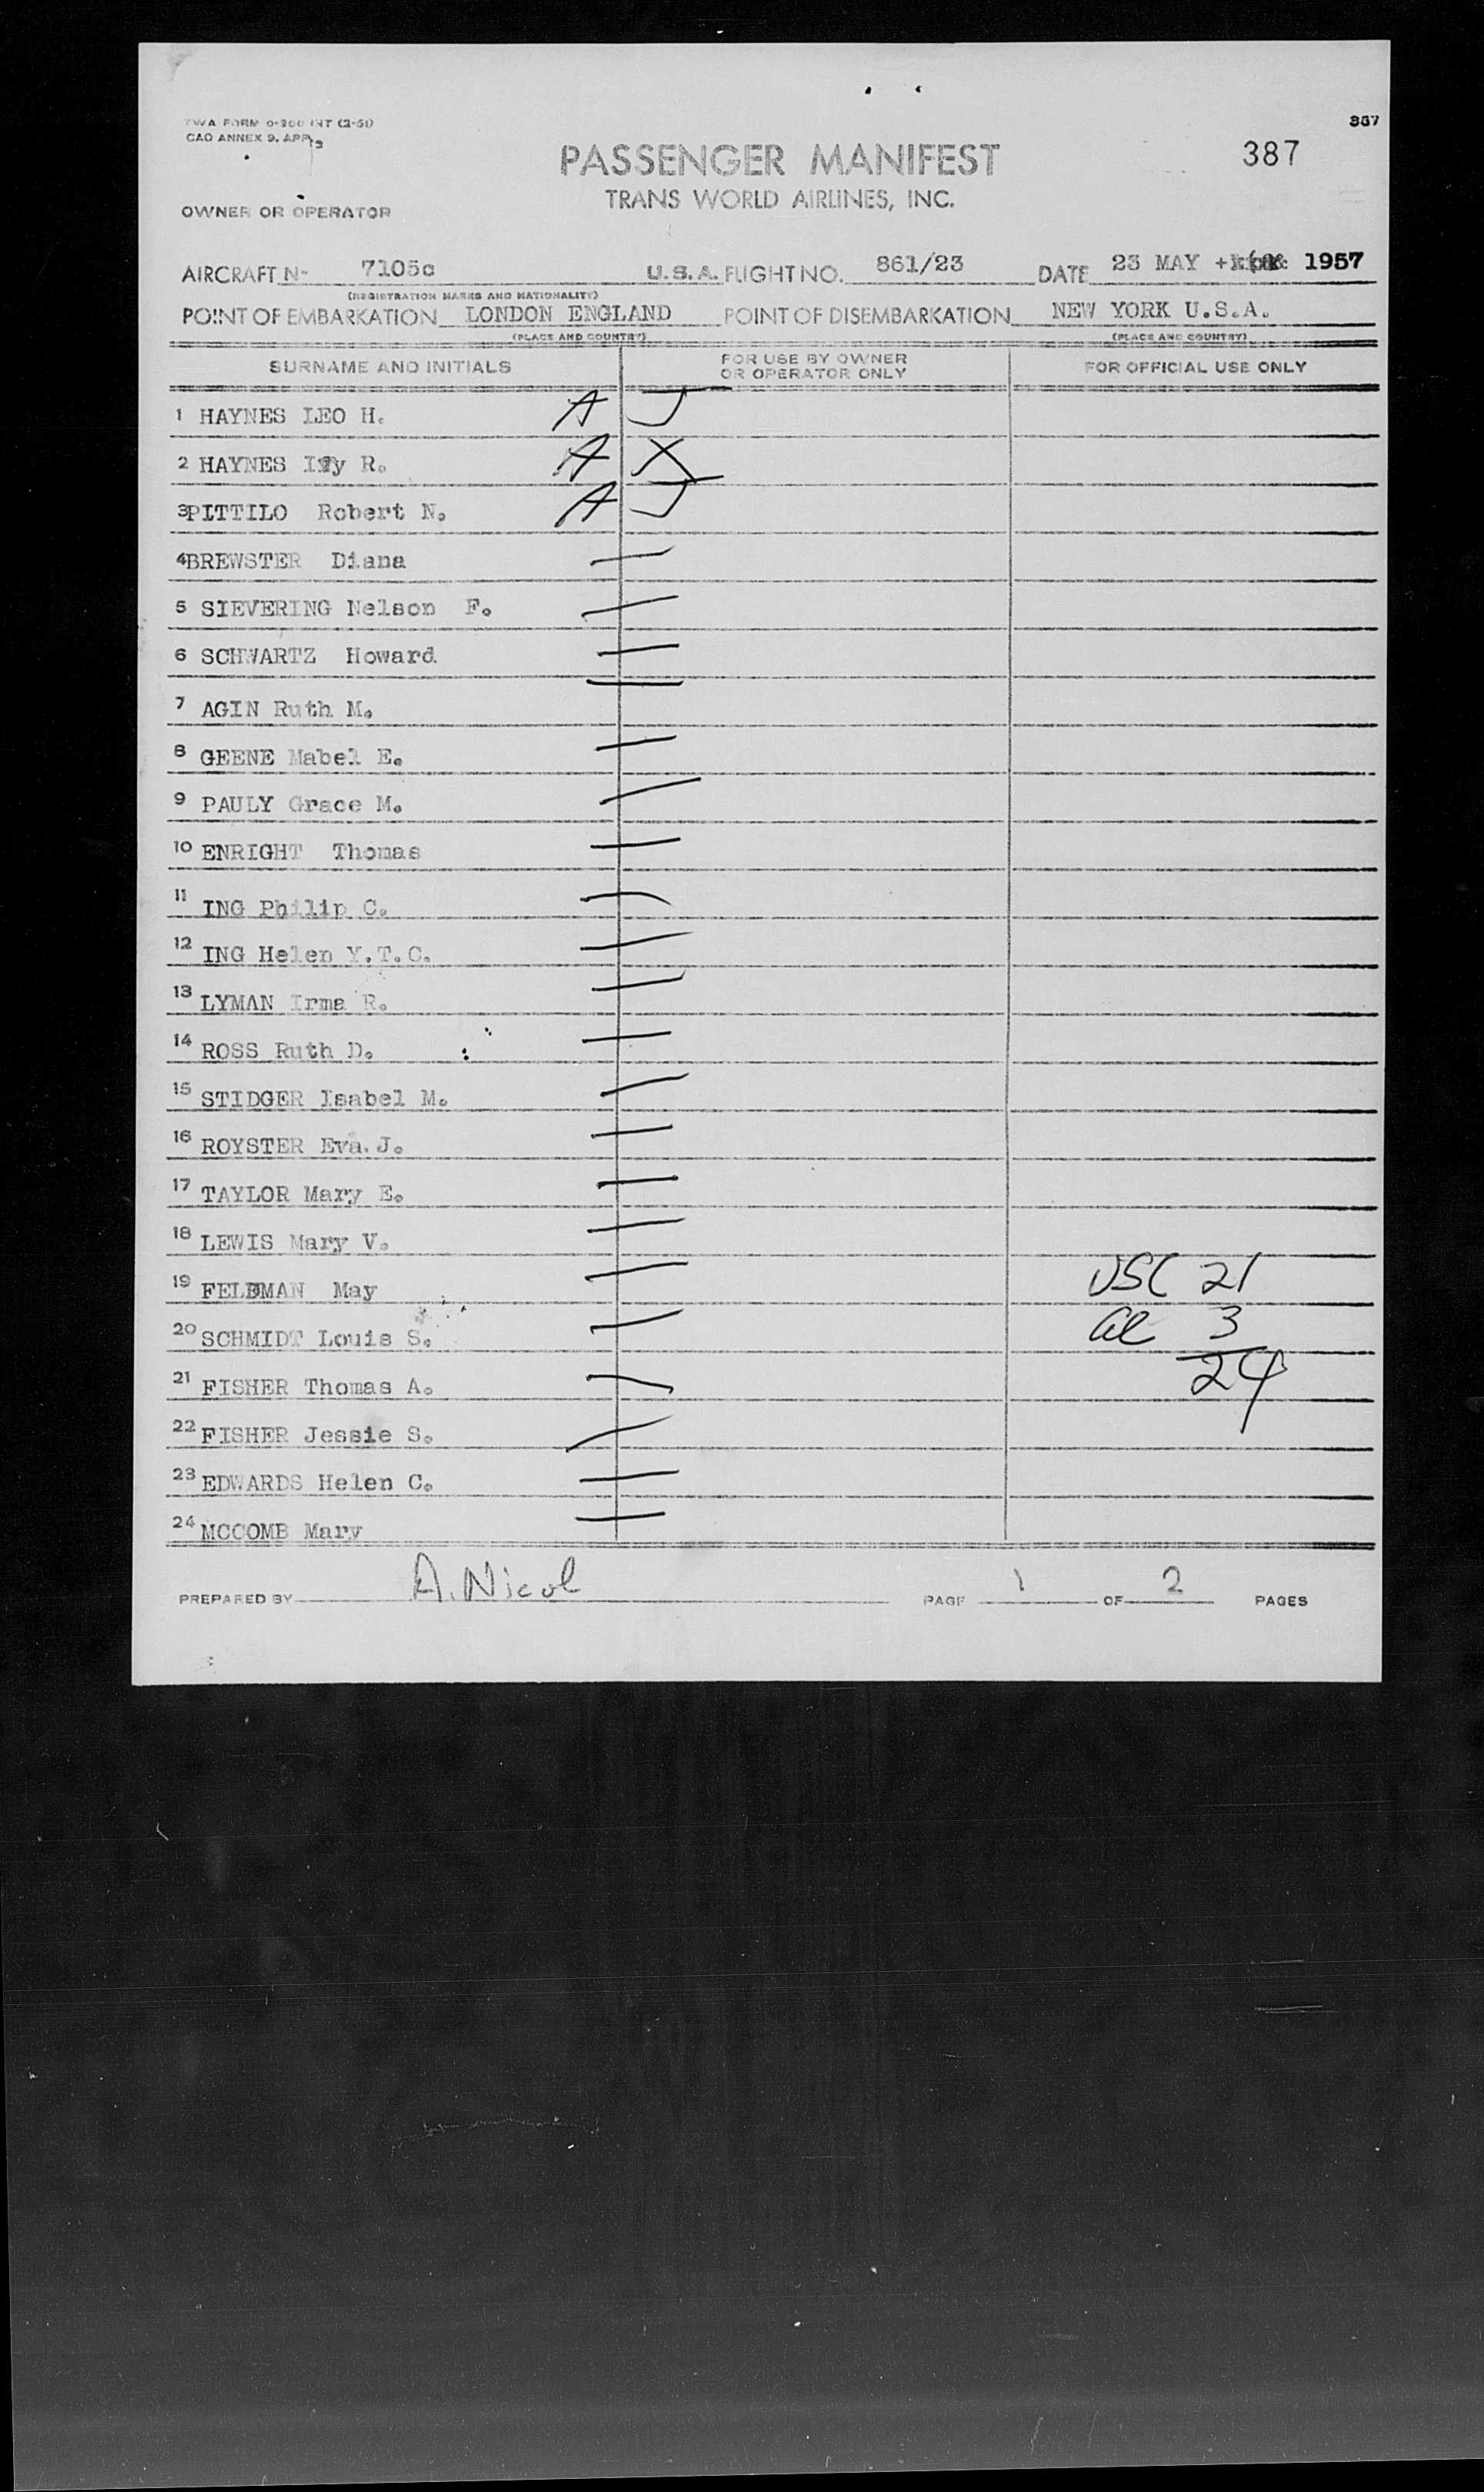 387
TWA FORM 0-200 INT (2-51)
CAO ANNEX 9. APP. 3
PASSENGER MANIFEST
387
TRANS WORLD AIRLINES, INC.
OWNER OR OPERATOR
AIRCRAFT N- 7105c U.S.A. FLIGHT NO. 861/23 DATE 23 MAY 1957
(REGISTRATION MARKS AND NATIONALITY)
POINT OF EMBARKATION LONDON ENGLAND POINT OF DISEMBARKATION NEW YORK U.S.A.
(PLACE AND COUNTRY) (PLACE AND COUNTRY)
SURNAME AND INITIALS FOR USE BY OWNER OR OPERATOR ONLY FOR OFFICIAL USE ONLY
1 HAYNES LEO H. A
2 HAYNES R. A X
3 PITTILO Robert N. A
4 BREWSTER Diana
5 SIEVERING Nelson F.
6 SCHWARTZ Howard
7 AGIN Ruth M.
8 GEENE Mabel E.
9 PAULY Grace M.
10 ENRIGHT Thomas
11 ING Philip C.
12 ING Helen Y.T.C.
13 LYMAN Irma R.
14 ROSS Ruth D.
15 STIDGER Isabel M.
16 ROYSTER Eva J.
17 TAYLOR Mary E.
18 LEWIS Mary V.
19 FELDMAN May USC 21
20 SCHMIDT Louis S. al 3
21 FISHER Thomas A. 24
22 FISHER Jessie S.
23 EDWARDS Helen C.
24 MCCOMB Mary
PREPARED BY A. Nicol PAGE 1 OF 2 PAGES